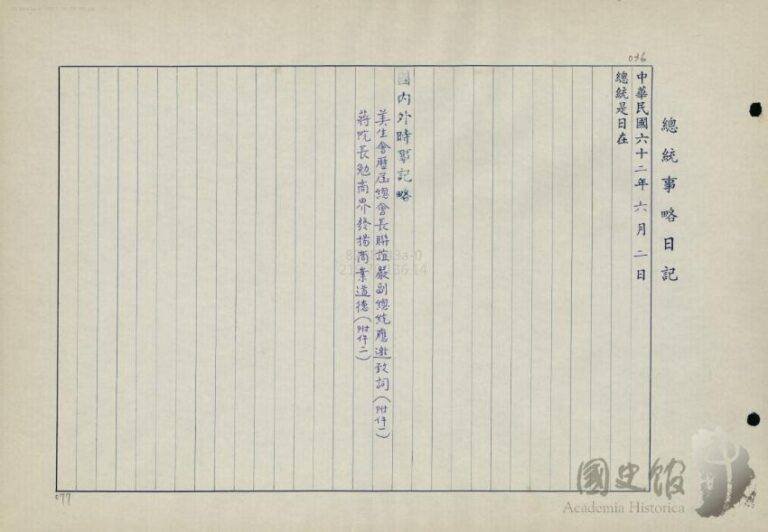 036
總統事略日記
中華民國六十二年六月二日
總統是日在
國內外時事記略
美生會歷屆總會長聯誼嚴副總統應邀致詞(附件一)
蔣院長勉商界發揚商業道德(附件二)
077
國史館
Academia Historica